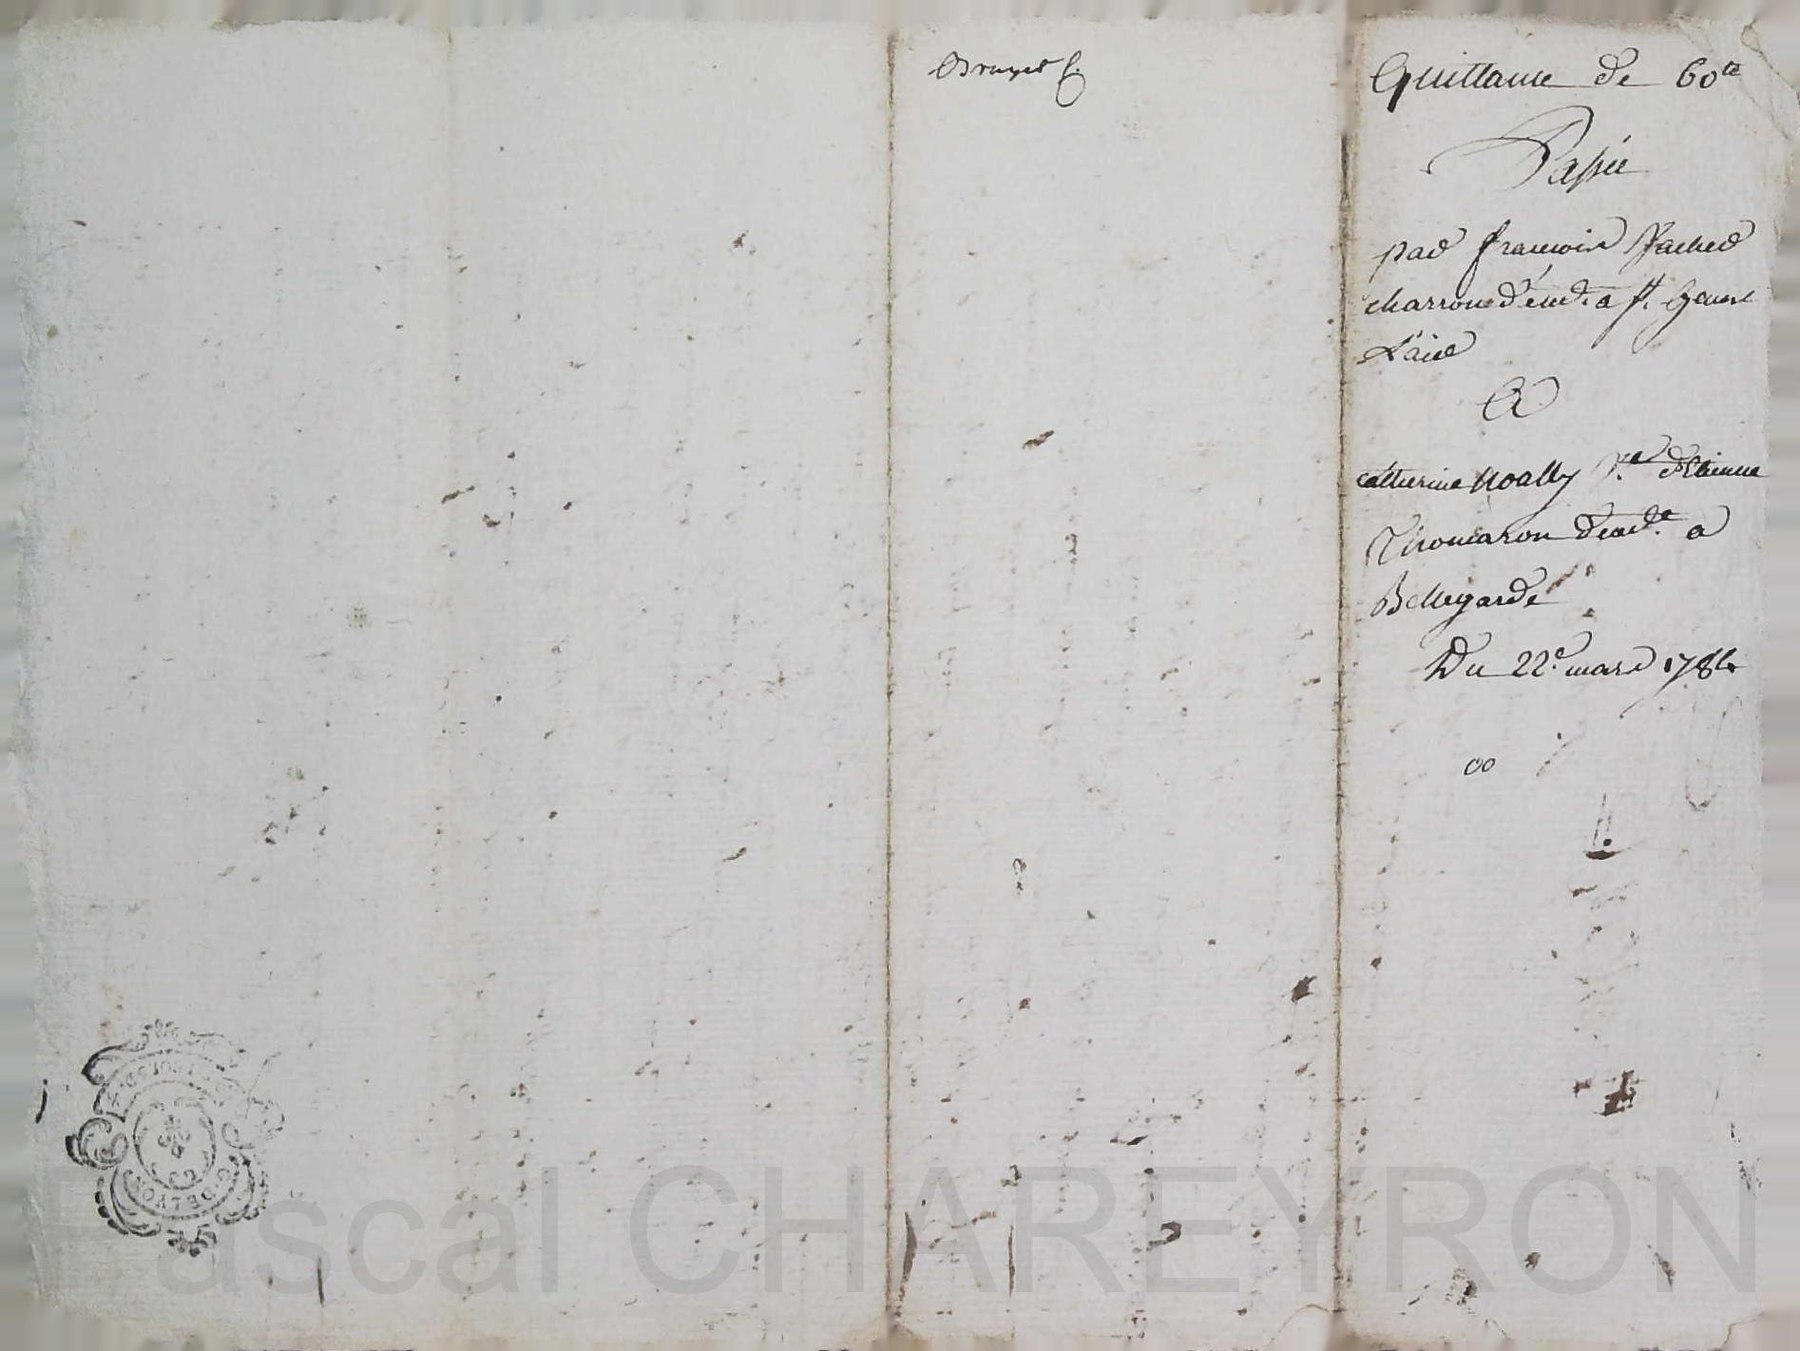 Bruyet
Quittance de 60ᵗᵗ
Passée
par francois Vacher
charron demt. a st. Genest
Lair
A
catherine Noally Ve. d'Etienne
Thomaron demte. a
Bellegarde
Du 22e. mars 1784
G. DE LYON
Pascal CHAREYRON